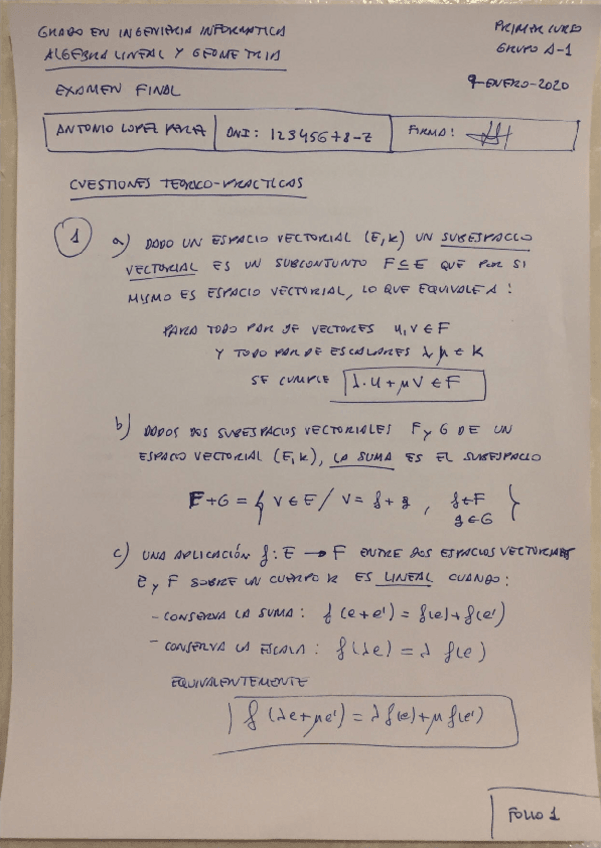 GRADO EN INGENIERIA INFORMATICA
PRIMER CURSO
ALGEBRA LINEAL Y GEOMETRIA
GRUPO A-1
EXAMEN FINAL
9-ENERO-2020
ANTONIO LOPEZ PEREZ DNI: 12345678-Z FIRMA:
CUESTIONES TEORICO-PRACTICAS
1 a) DADO UN ESPACIO VECTORIAL (E,K) UN SUBESPACIO
VECTORIAL ES UN SUBCONJUNTO F⊆E QUE POR SI
MISMO ES ESPACIO VECTORIAL, LO QUE EQUIVALE A:
PARA TODO PAR DE VECTORES u,v ∈ F
Y TODO PAR DE ESCALARES λ μ ∈ K
SE CUMPLE λ·u+μv ∈ F
b) DADOS DOS SUBESPACIOS VECTORIALES F y G DE UN
ESPACIO VECTORIAL (E,K), LA SUMA ES EL SUBESPACIO
F+G = { v ∈ E / v = f + g , f ∈ F
g ∈ G }
c) UNA APLICACIÓN f: E → F ENTRE DOS ESPACIOS VECTORIALES
E y F SOBRE UN CUERPO K ES LINEAL CUANDO:
- CONSERVA LA SUMA: f(e+e') = f(e)+f(e')
- CONSERVA LA ESCALA: f(λe) = λ f(e)
EQUIVALENTEMENTE
f(λe+μe') = λf(e)+μf(e')
FOLIO 1